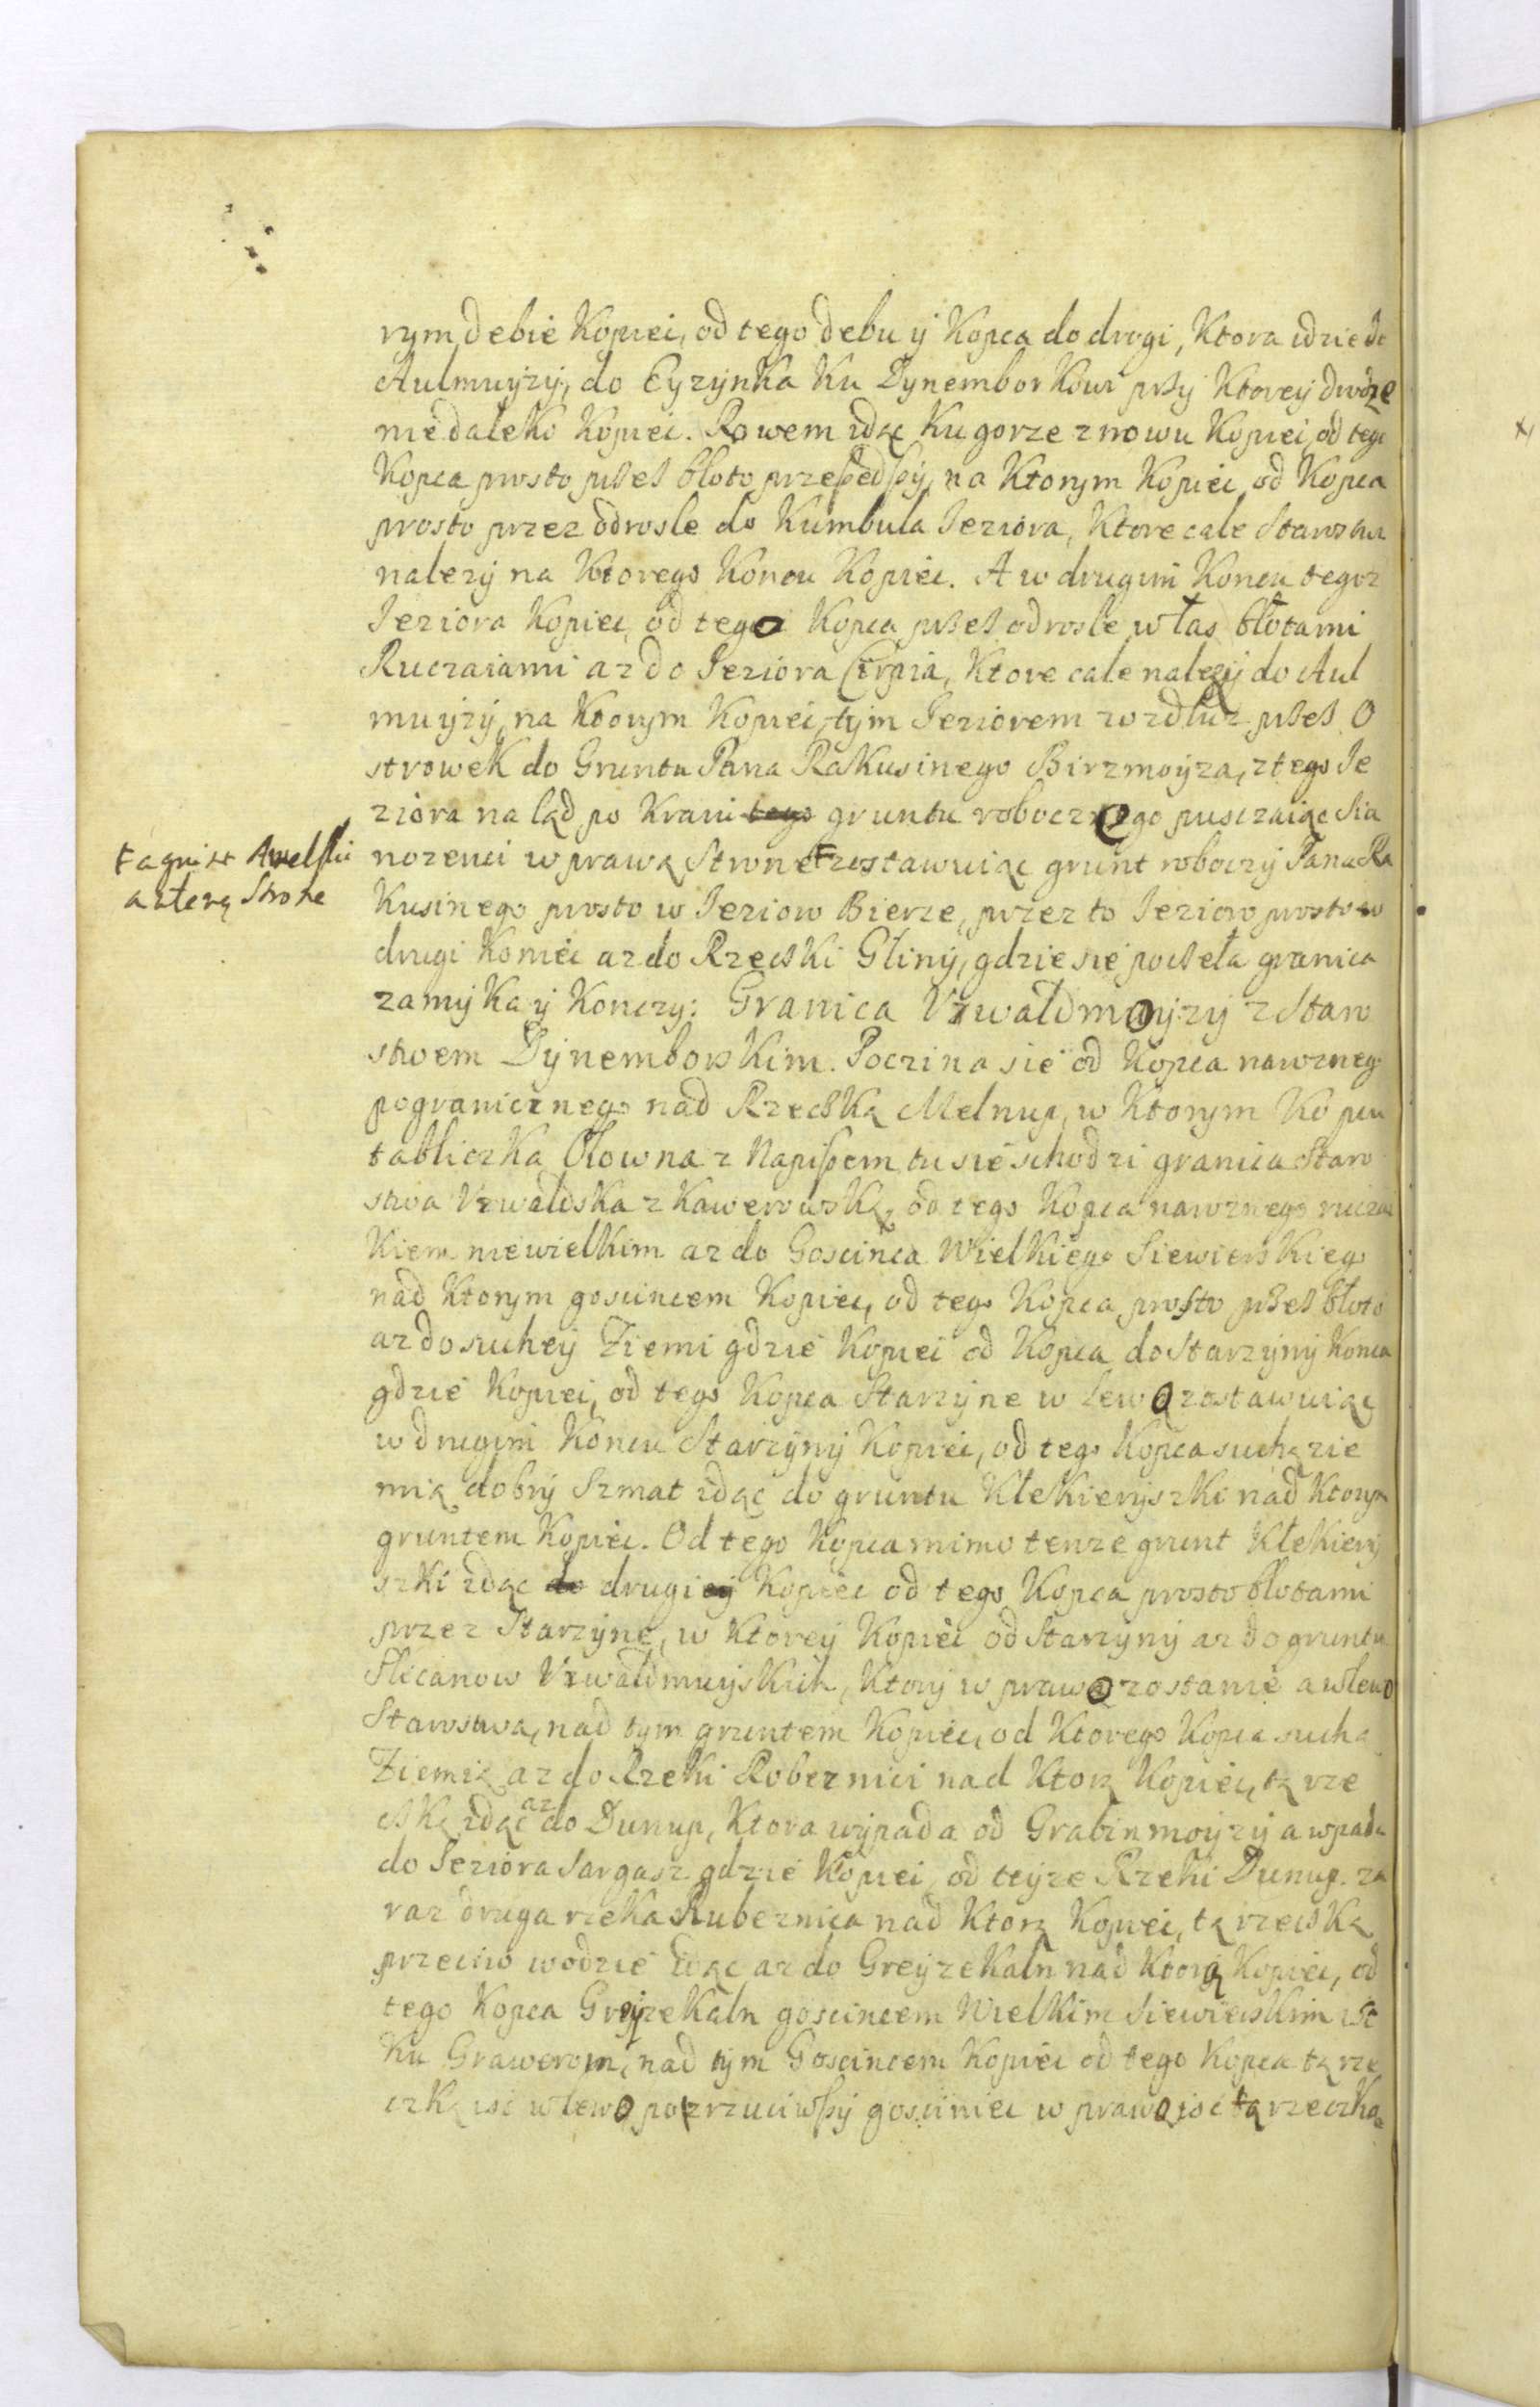 rym debie Kopiec, od tego debu ÿ Kopca do drogi, Ktora idzie do
Aulmuÿzÿ, do Eyzynka Ku Dynemborkowi pssÿ Ktoreÿ drodze
niedaleko Kopiec. Rowem idąc Ku gorze znowu Kopiec, od tego
Kopca prosto pszes błoto przeszedszÿ, na Ktorym Kopiec, od Kopca
prosto przez odrosle do Kumbula Ieziora, Ktore cale
nalezÿ na Ktorego Koncu Kopiec. A w drugim Koncu tegoz
Ieziora Kopiec, od tego Kopca pszes odrosle w las błotami
Ruczaiami az do Ieziora Cirpia, Ktore cale nalezÿ do Aul
muÿzÿ, na Ktorym Kopiec, tÿm Ieziorem wzdłuz pszes O
strowek do Gruntu Pana Rakusinego Birzmoÿza, z tego Ie
ziora na ląd po Kraiu tego gruntu roboczego pusczaiąc Sia
nozenci w prawą Strone zostawuiąc grunt roboczÿ Pana Ra
a z lewą Strone
Kusinego prosto w Iezioro Bierze, przez to Iezioro prosto w
drugi Koniec az do Rzeczki Glinÿ, gdzie sie poczeła granica
zamÿka ÿ Konczy: Granica Vzwaldmoÿzÿ z Staro
stwem Dÿnemborskim. Poczina sie od Kopca naroznego
pogranicznego nad Rzeczką Melnup, w Ktorym Kopcu
tabliczka Ołowna z Napisem, tu sie schodzi granica Staro
stwa Vzwaldska z Kawerowską, od tego Kopca naroznego ruczai
Kiem niewielkim az do Goscinca Wielkiego Siewierskiego
nad Ktorym goscincem Kopiec, od tego Kopca prosto pszes błoto
az do sucheÿ Ziemi gdzie Kopiec od Kopca do Starzÿnÿ Konca
gdzie Kopiec, od tego Kopca Starzÿne w lewo zostawuiąc
w drugim Koncu Starzÿnÿ Kopiec, od tego Kopca suchą zie
mią dobrÿ Szmat idąc do gruntu Klekierÿszki nad Ktorym
gruntem Kopiec. Od tego Kopca mimo tenze grunt Klekierÿ
szki idąc do drugieÿ Kopiec od tego Kopca prosto błotami
przez Starzÿne, w Ktoreÿ Kopiec od Starzÿnÿ az do gruntu
Slicanow Vzwaldmuÿskich, Ktorÿ w prawo zostanie a w lewo
Starostwa, nad tym gruntem Kopiec, od Ktorego Kopca sucha
Ziemią az do Rzeki Robeznici nad Ktorą Kopiec, tą rze
czką idąc az do Dunup, Ktora wÿpada od Grabinmoÿzÿ a wpada
do Ieziora Sargasz gdzie Kopiec, od teÿze Rzeki Dunup. za
raz druga rzeka Rubeznica nad Ktorą Kopiec, tą rzeczką
przeciw wodzie idąc az do Greÿzekaln nad Ktorą Kopiec, od
tego Kopca Greÿzekaln goscincem Wielkim Siewierskim isc
Ku Graweron, nad tÿm Goscincem Kopiec od tego Kopca tą rze
czką isc w lewo porzuciwszÿ gosciniec w prawo isc tą rzeczką